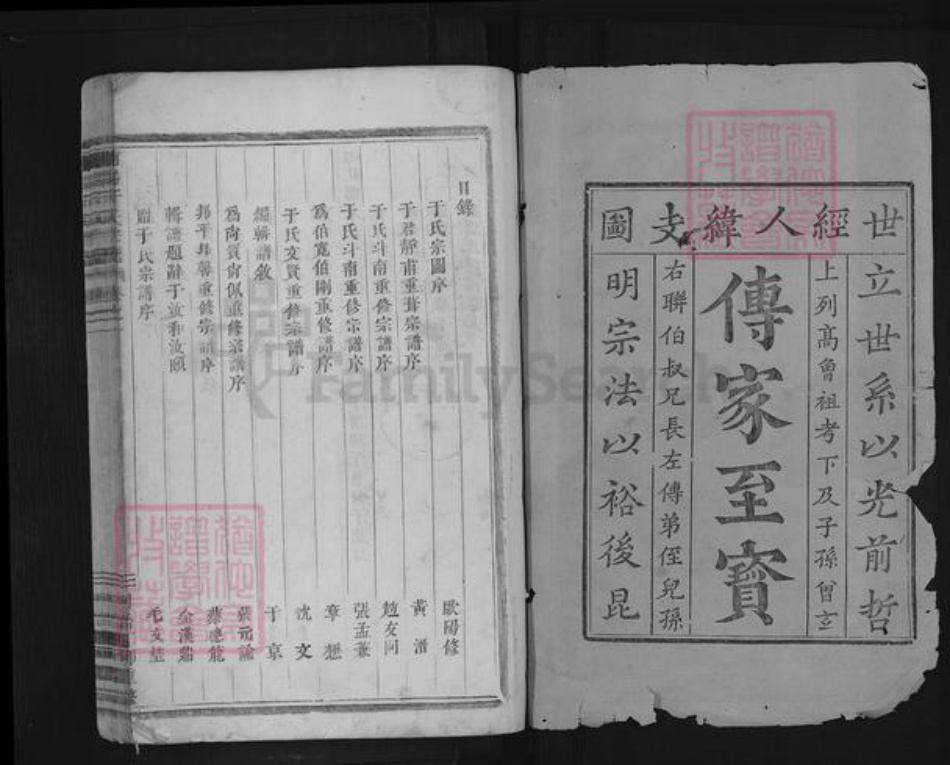 世經人緯支圖
立世系以光前哲
上列高曾祖考下及子孫曾玄
傳家至寶
右聯伯叔兄長左傳弟侄兒孫
明宗法以裕後昆
目錄
于氏宗圖序 歐陽修
于君靜甫重葺宗譜序 黃溍
于氏斗南重修宗譜序 趙友同
于氏斗南重修宗譜序 張孟兼
為伯寬伯剛重修譜序 章懋
于氏文賢重修宗譜序 沈文
編輯譜敘 于京
為尚賓甯佩重修宗譜序 張元諭
邦平邦馨重修宗譜序 蔡應龍
輯譜題辭于汝和汝頤 金漢鼎
于氏宗譜序 毛文埜
FamilySearch